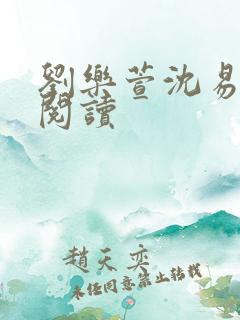 劉樂萱沈易
閱讀
趙天奕
未經同意禁止轉載